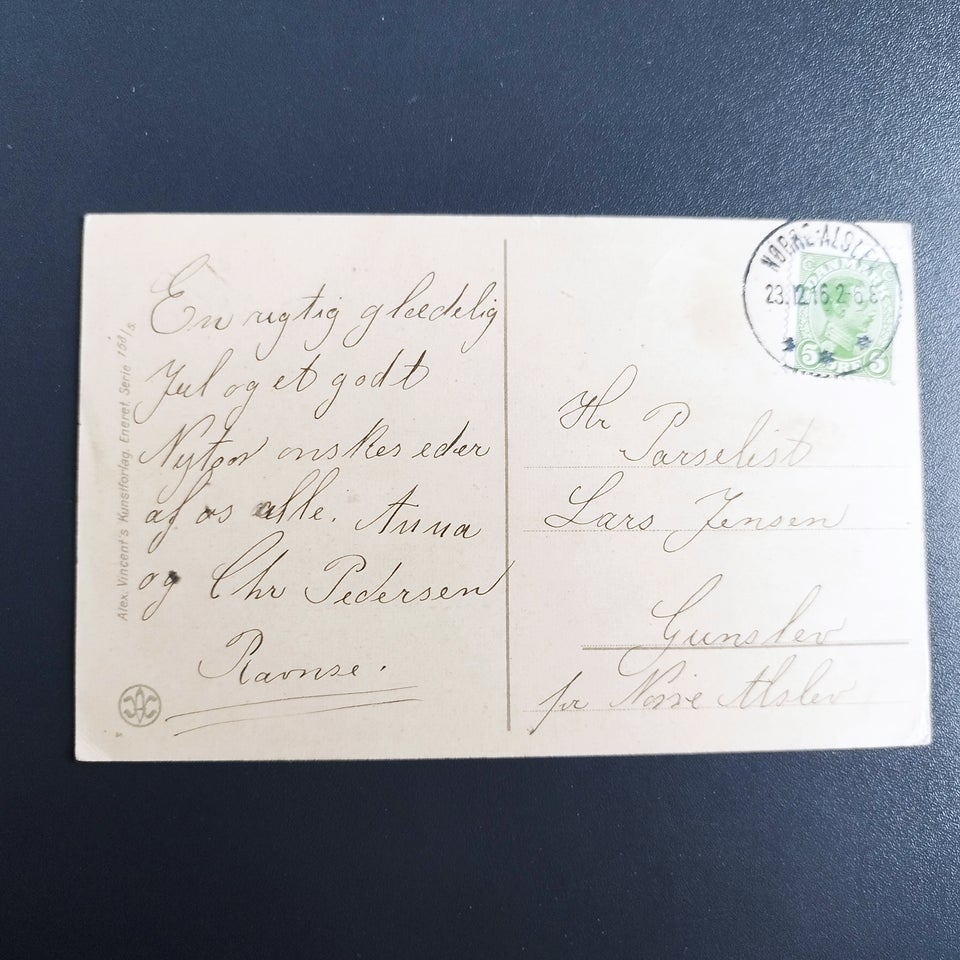 En rigtig gleedelig
Jul og et godt
Nytaar onskes eder
af os alle. Anna
og Chr Pedersen
Ravnse.
Alex. Vincent's Kunstforlag. Eneret. Serie 158/5.
NØRRE-ALSLEV
23.12.16. 2-6.E
5 5
Hr
Parselist
Lars Jensen
Gunslev
pr Nørre Alslev